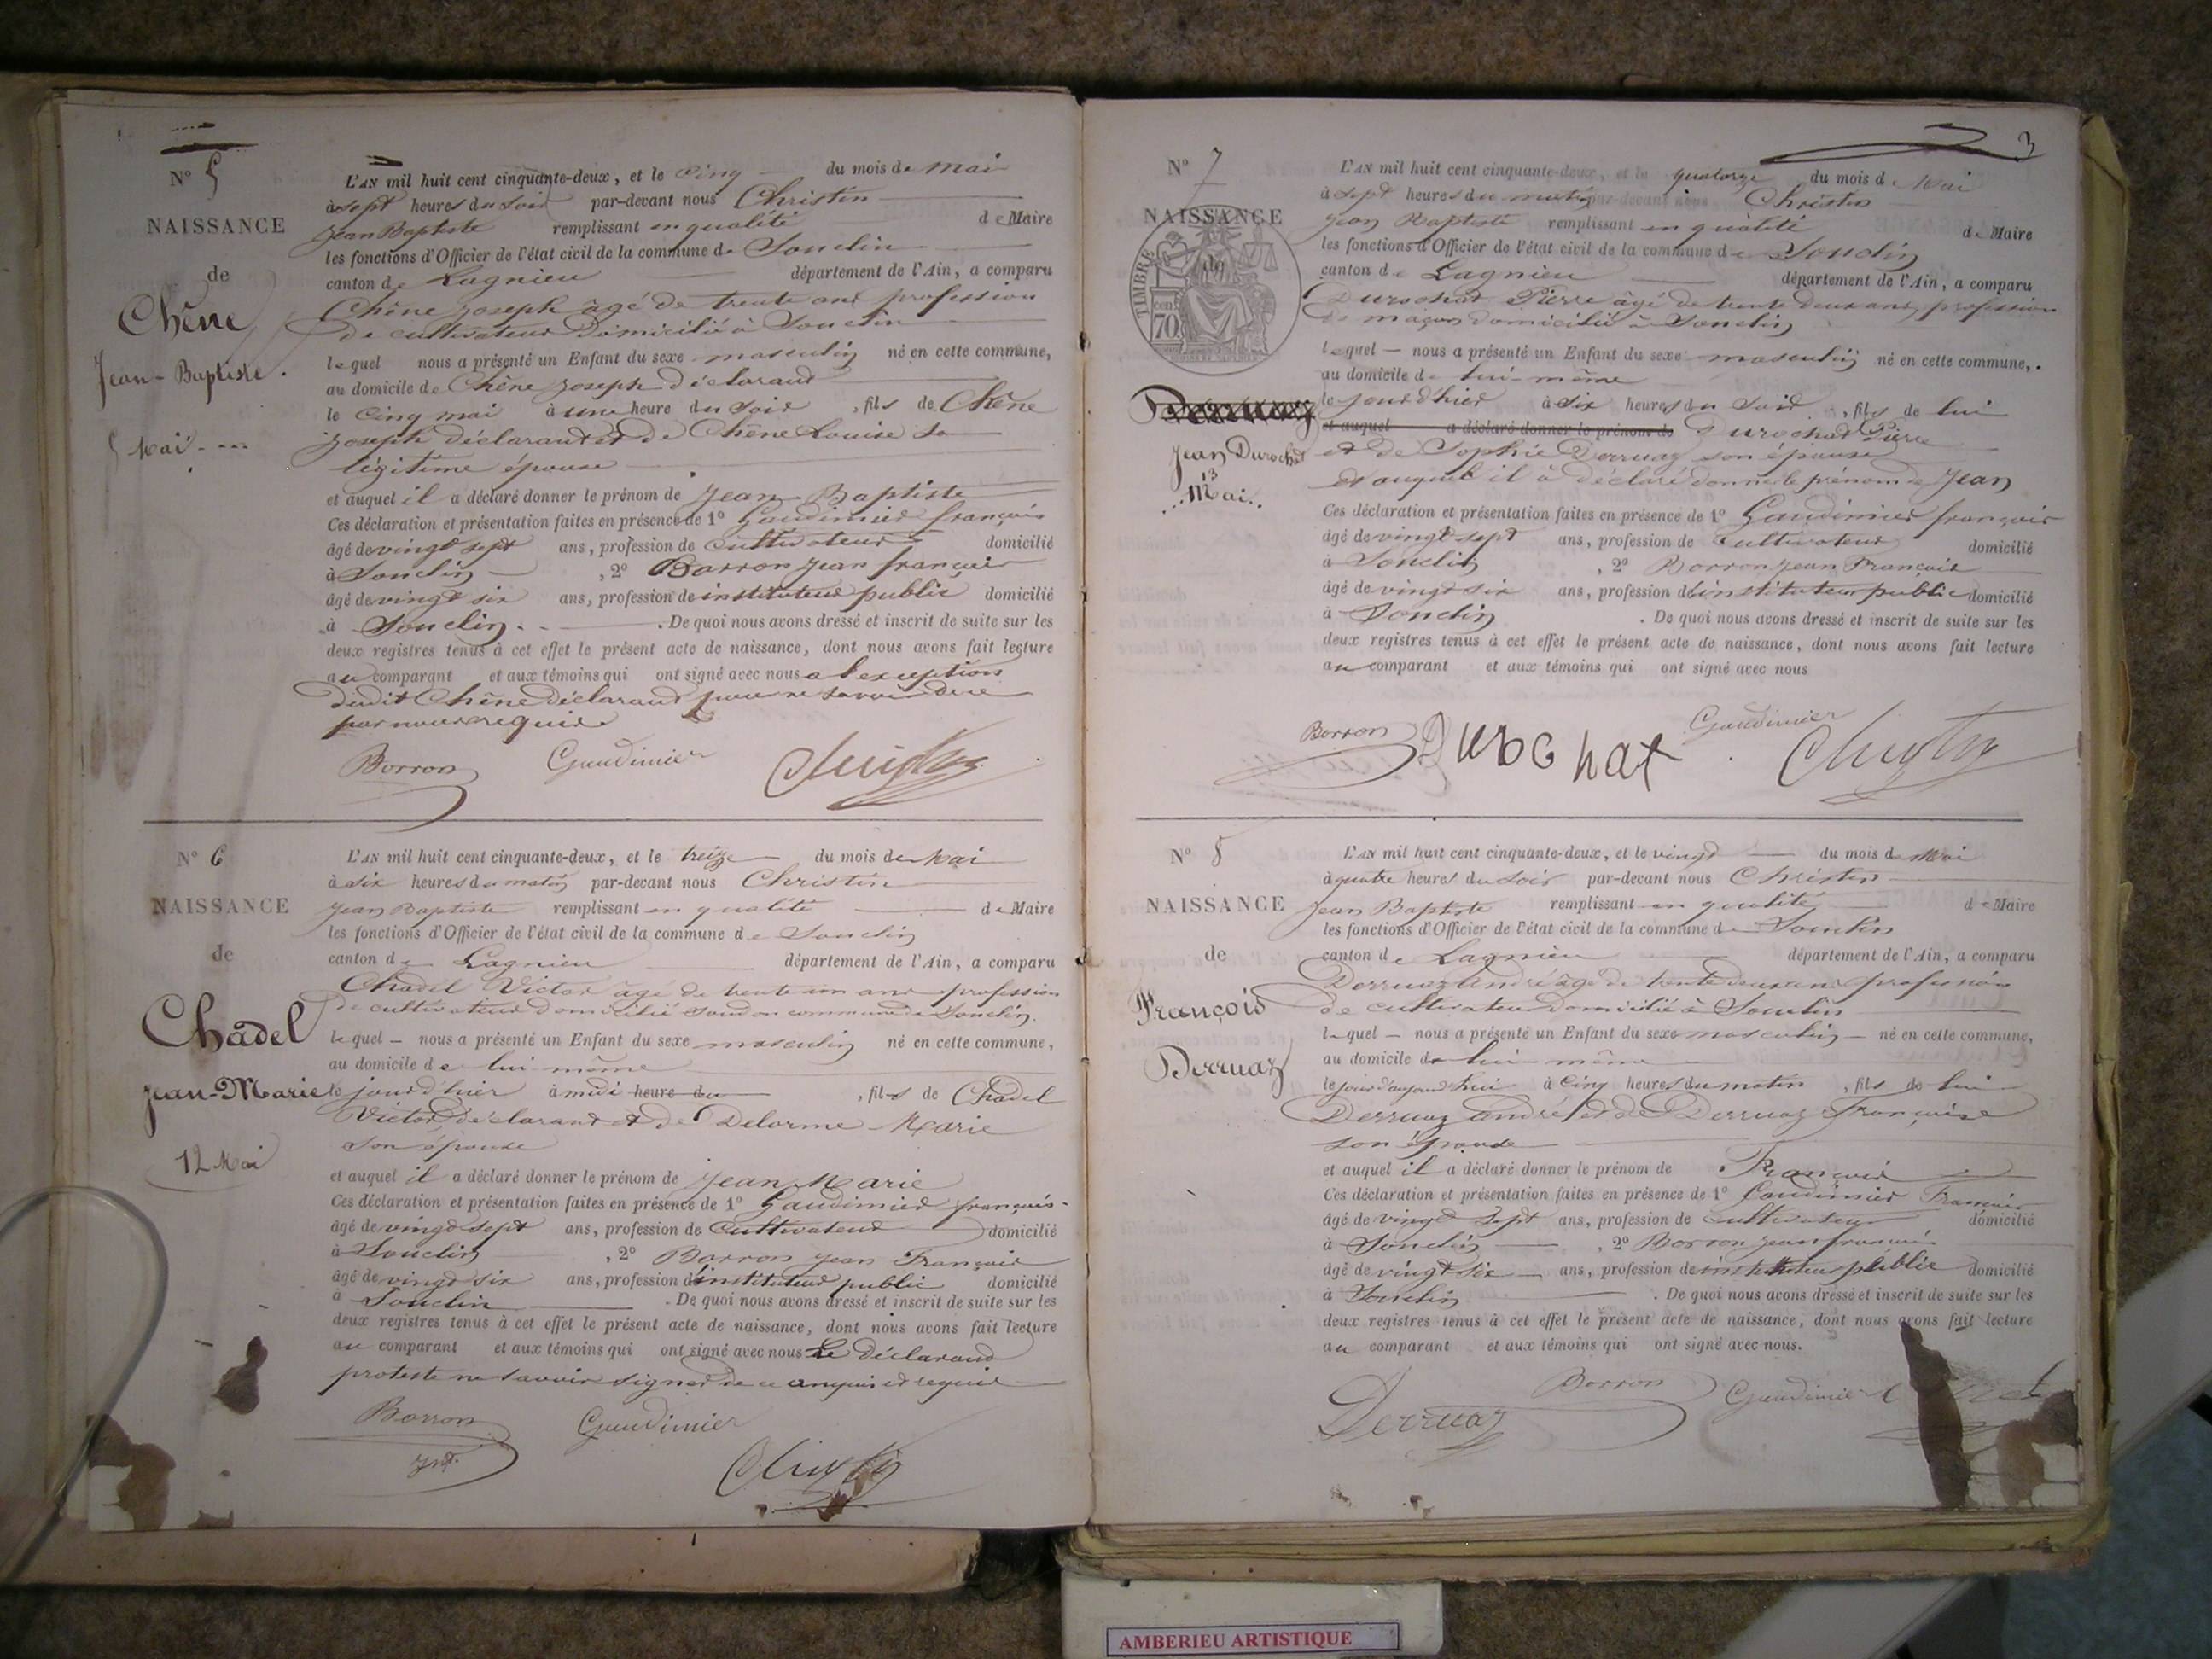 N° 5
NAISSANCE
de
Chêne
Jean-Baptiste.
5 Mai
L'AN mil huit cent cinquante-deux, et le cinq du mois de Mai
à sept heures du soir par-devant nous Christin
Jean Baptiste remplissant en qualité de Maire
les fonctions d'Officier de l'état civil de la commune de Souclin
canton de Lagnieu département de l'Ain, a comparu
Chêne Joseph âgé de trente ans profession
de cultivateur domicilié à Souclin
lequel nous a présenté un Enfant du sexe masculin né en cette commune,
au domicile de Chêne Joseph déclarant
le cinq mai à une heure du soir, fils de Chêne
Joseph déclarant et de Chêne Louise sa
légitime épouse
et auquel il a déclaré donner le prénom de Jean-Baptiste
Ces déclaration et présentation faites en présence de 1° Gaudimier françois
âgé de vingt sept ans, profession de cultivateur domicilié
à Souclin, 2° Borron Jean françois
âgé de vingt six ans, profession de instituteur public domicilié
à Souclin. De quoi nous avons dressé et inscrit de suite sur les
deux registres tenus à cet effet le présent acte de naissance, dont nous avons fait lecture
au comparant et aux témoins qui ont signé avec nous a l'exception
dudit Chêne déclarant pour ne savoir de ce
par nous requis
Borron Gaudimier Christin
N° 6
NAISSANCE
de
Chadel
Jean-Marie
12 Mai
L'AN mil huit cent cinquante-deux, et le treize du mois de Mai
à six heures du matin par-devant nous Christin
Jean Baptiste remplissant en qualité de Maire
les fonctions d'Officier de l'état civil de la commune de Souclin
canton de Lagnieu département de l'Ain, a comparu
Chadel Victor âgé de trente un ans profession
de cultivateur domicilié commune de Souclin.
lequel nous a présenté un Enfant du sexe masculin né en cette commune,
au domicile de lui-même
le jour d'hier à midi heure du, fils de Chadel
Victor déclarant et de Delorme Marie
son épouse
et auquel il a déclaré donner le prénom de Jean Marie
Ces déclaration et présentation faites en présence de 1° Gaudimier françois
âgé de vingt sept ans, profession de cultivateur domicilié
à Souclin, 2° Borron Jean François
âgé de vingt six ans, profession d'instituteur public domicilié
à Souclin. De quoi nous avons dressé et inscrit de suite sur les
deux registres tenus à cet effet le présent acte de naissance, dont nous avons fait lecture
au comparant et aux témoins qui ont signé avec nous Le déclarant
proteste ne savoir signer de ce enquis et requis
Borron Gaudimier
Christin
3
N° 7
NAISSANCE
de
TIMBRE
70
cent
Derruaz
Jean Durochat
13
Mai.
L'AN mil huit cent cinquante-deux, et le quatorze du mois de Mai
à sept heures du matin par-devant nous Christin
Jean Baptiste remplissant en qualité de Maire
les fonctions d'Officier de l'état civil de la commune de Souclin
canton de Lagnieu département de l'Ain, a comparu
Durochat Pierre âgé de trente deux ans, profession
de maçon domicilié à Souclin
lequel nous a présenté un Enfant du sexe masculin né en cette commune,
au domicile de lui-même
le jour d'hier à six heures du soir, fils de lui
et auquel a déclaré donner le prénom de Durochat Pierre
et de Sophie Derruaz son épouse
et auquel il à déclaré donner le prénom de Jean
Ces déclaration et présentation faites en présence de 1° Gaudimier françois
âgé de vingt sept ans, profession de cultivateur domicilié
à Souclin, 2° Borron Jean François
âgé de vingt six ans, profession d'instituteur public domicilié
à Souclin. De quoi nous avons dressé et inscrit de suite sur les
deux registres tenus à cet effet le présent acte de naissance, dont nous avons fait lecture
au comparant et aux témoins qui ont signé avec nous
Borron Durochat Gaudimier Christin
N° 8
NAISSANCE
de
François
Derruaz
L'AN mil huit cent cinquante-deux, et le vingt du mois de Mai
à quatre heures du soir par-devant nous Christin
Jean Baptiste remplissant en qualité de Maire
les fonctions d'Officier de l'état civil de la commune de Souclin
canton de Lagnieu département de l'Ain, a comparu
Derruaz André âgé de trente deux ans profession
de cultivateur domicilié à Souclin
lequel nous a présenté un Enfant du sexe masculin né en cette commune,
au domicile de lui-même
le jour d'aujourd'hui à cinq heures du matin, fils de lui
Derruaz André et de Derruaz Françoise
son épouse
et auquel il a déclaré donner le prénom de François
Ces déclaration et présentation faites en présence de 1° Gaudimier François
âgé de vingt sept ans, profession de cultivateur domicilié
à Souclin, 2° Borron Jean françois
âgé de vingt six ans, profession de instituteur public domicilié
à Souclin. De quoi nous avons dressé et inscrit de suite sur les
deux registres tenus à cet effet le présent acte de naissance, dont nous avons fait lecture
au comparant et aux témoins qui ont signé avec nous.
Derruaz Borron Gaudimier
AMBERIEU ARTISTIQUE